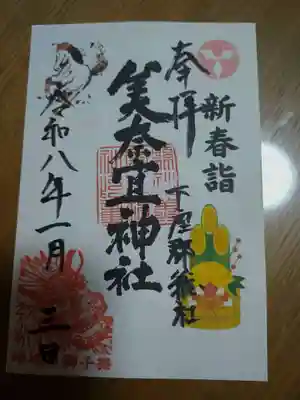 奉拝
新春詣
下座郡総社
美奈宜神社
令和八年一月三日